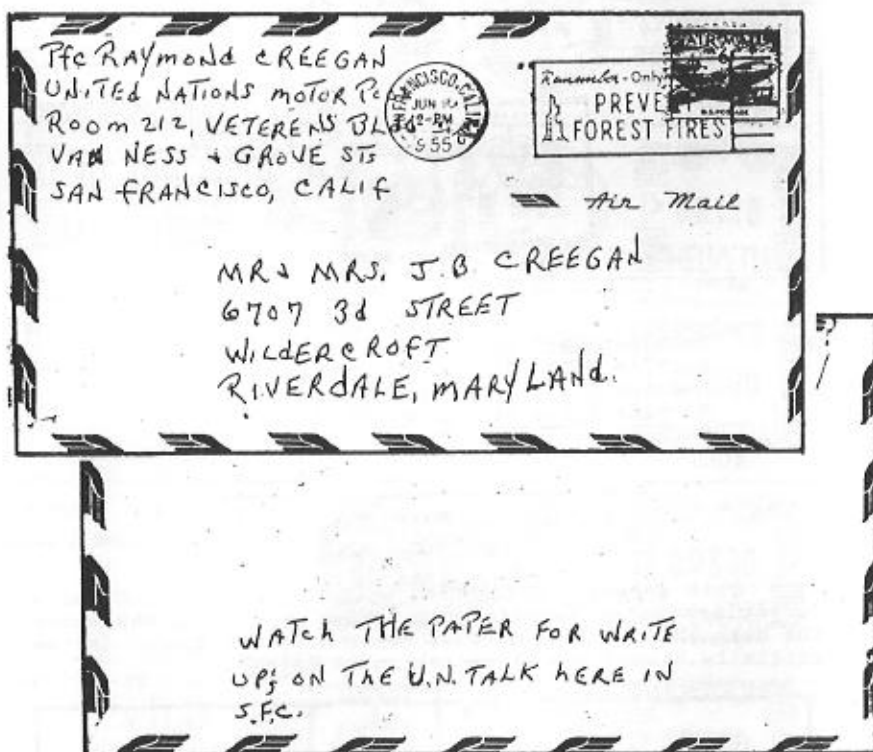 Pfc RAYMOND CREEGAN
UNITED NATIONS MOTOR
ROOM 212, VETERENS
VAN NESS + GROVE STS
SAN FRANCISCO, CALIF
FRANCISCO, CALIF.
JUN
12-PM
1955
Remember - Only
PREVENT
FOREST FIRES
AIR MAIL
U.S. POSTAGE
Air Mail
MR & MRS. J.B. CREEGAN
6707 3d STREET
WILDERCROFT
RIVERDALE, MARYLAND.
WATCH THE PAPER FOR WRITE
UP'S ON THE U.N. TALK HERE IN
S.F.C.